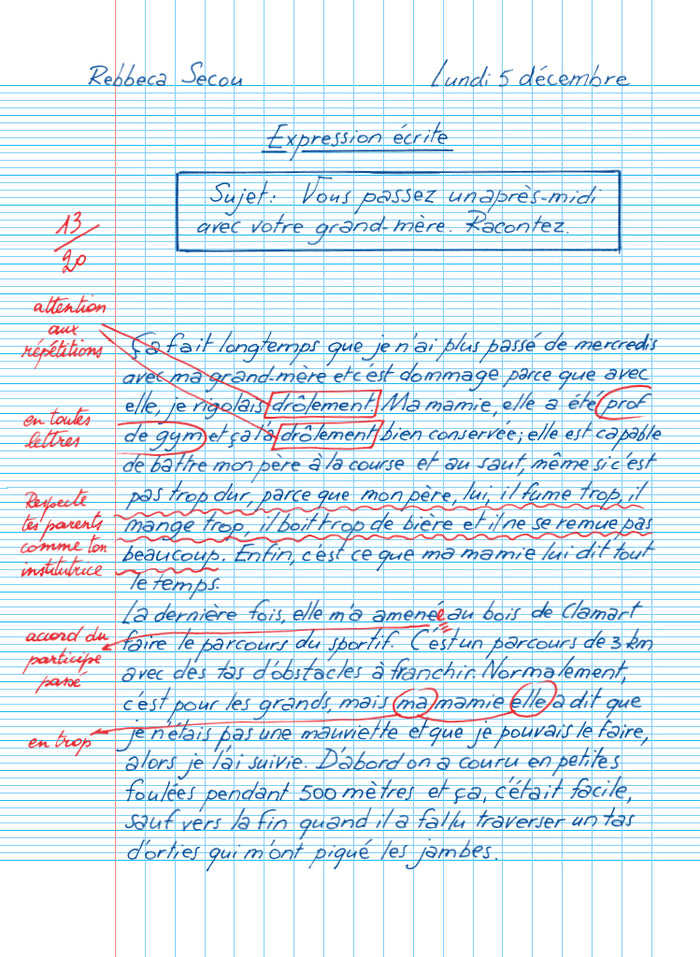 Rebbeca Secou
Lundi 5 décembre
Expression écrite
Sujet: Vous passez un après-midi
avec votre grand-mère. Racontez.
13/20
attention
aux
répétitions
Ça fait longtemps que je n'ai plus passé de mercredis
avec ma grand-mère et c'est dommage parce que avec
elle, je rigolais drôlement. Ma mamie, elle a été prof
en toutes
lettres
de gym et ça l'a drôlement bien conservée; elle est capable
de battre mon père à la course et au saut, même si c'est
Respecte
tes parents
comme ton
institutrice
pas trop dur, parce que mon père, lui, il fume trop, il
mange trop, il boit trop de bière et il ne se remue pas
beaucoup. Enfin, c'est ce que ma mamie lui dit tout
le temps.
La dernière fois, elle m'a amenée au bois de Clamart
accord du
participe
passé
faire le parcours du sportif. C'est un parcours de 3 km
avec des tas d'obstacles à franchir. Normalement,
c'est pour les grands, mais ma mamie elle a dit que
en trop
je n'étais pas une mauviette et que je pouvais le faire,
alors je l'ai suivie. D'abord on a couru en petites
foulées pendant 500 mètres et ça, c'était facile,
sauf vers la fin quand il a fallu traverser un tas
d'orties qui m'ont piqué les jambes.